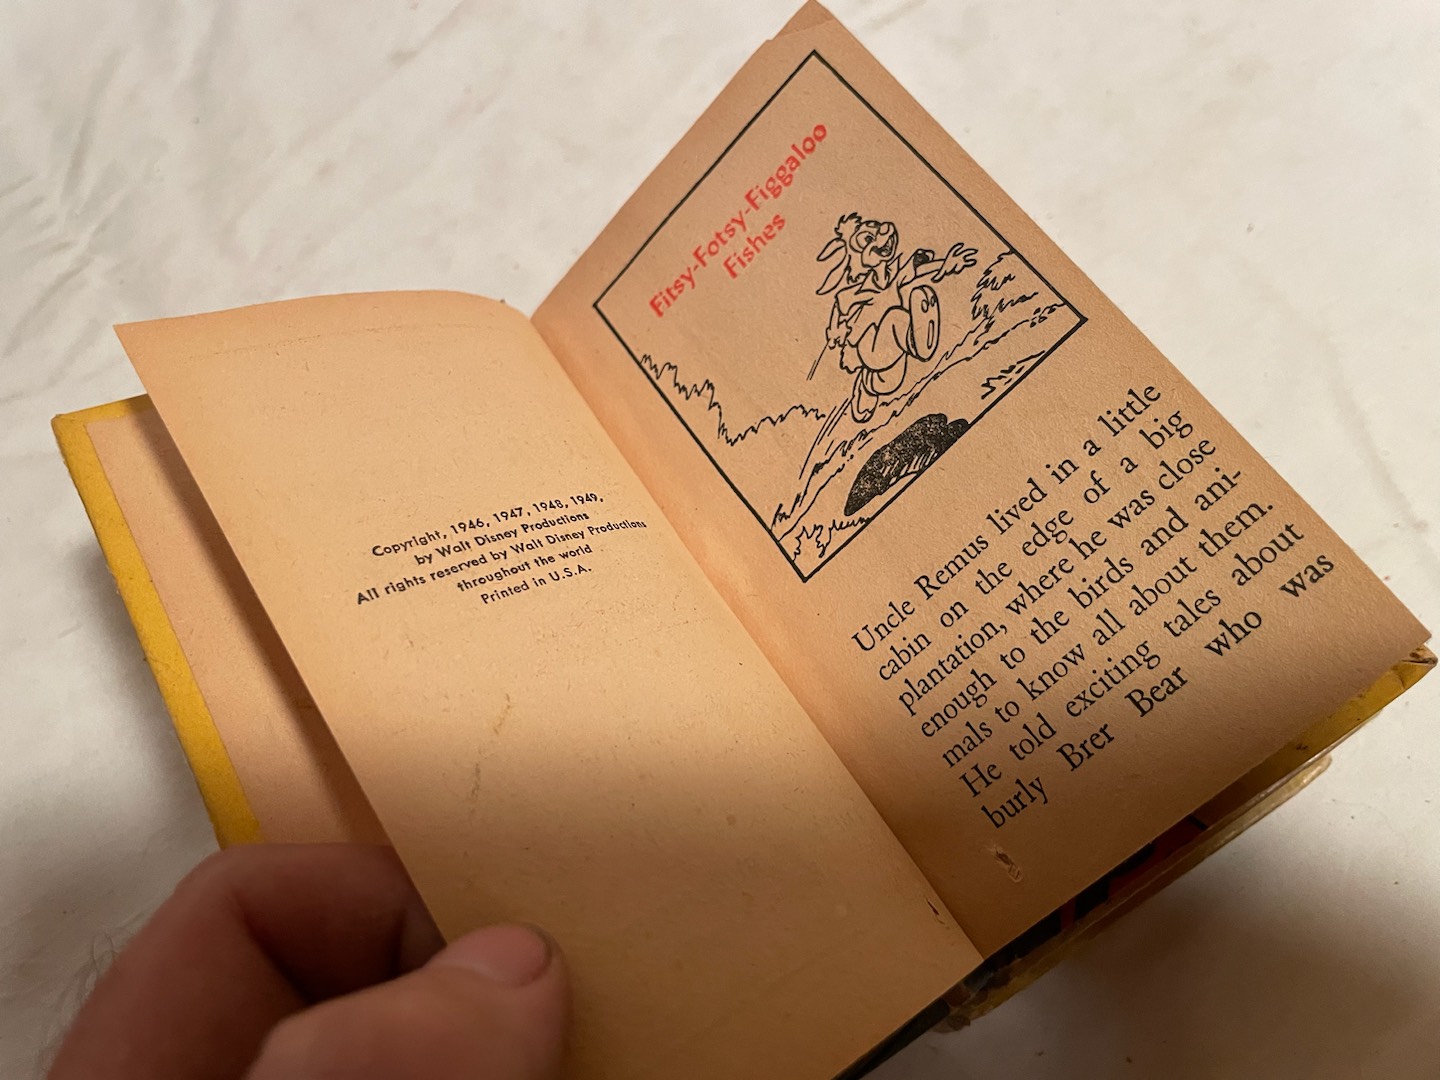 Copyright, 1946, 1947, 1948, 1949,
by Walt Disney Productions
All rights reserved by Walt Disney Productions
throughout the world
Printed in U.S.A.
Fitsy-Fotsy-Figgaloo
Fishes
Uncle Remus lived in a little
cabin on the edge of a big
plantation, where he was close
enough to the birds and ani-
mals to know all about them.
He told exciting tales about
burly Brer Bear who was